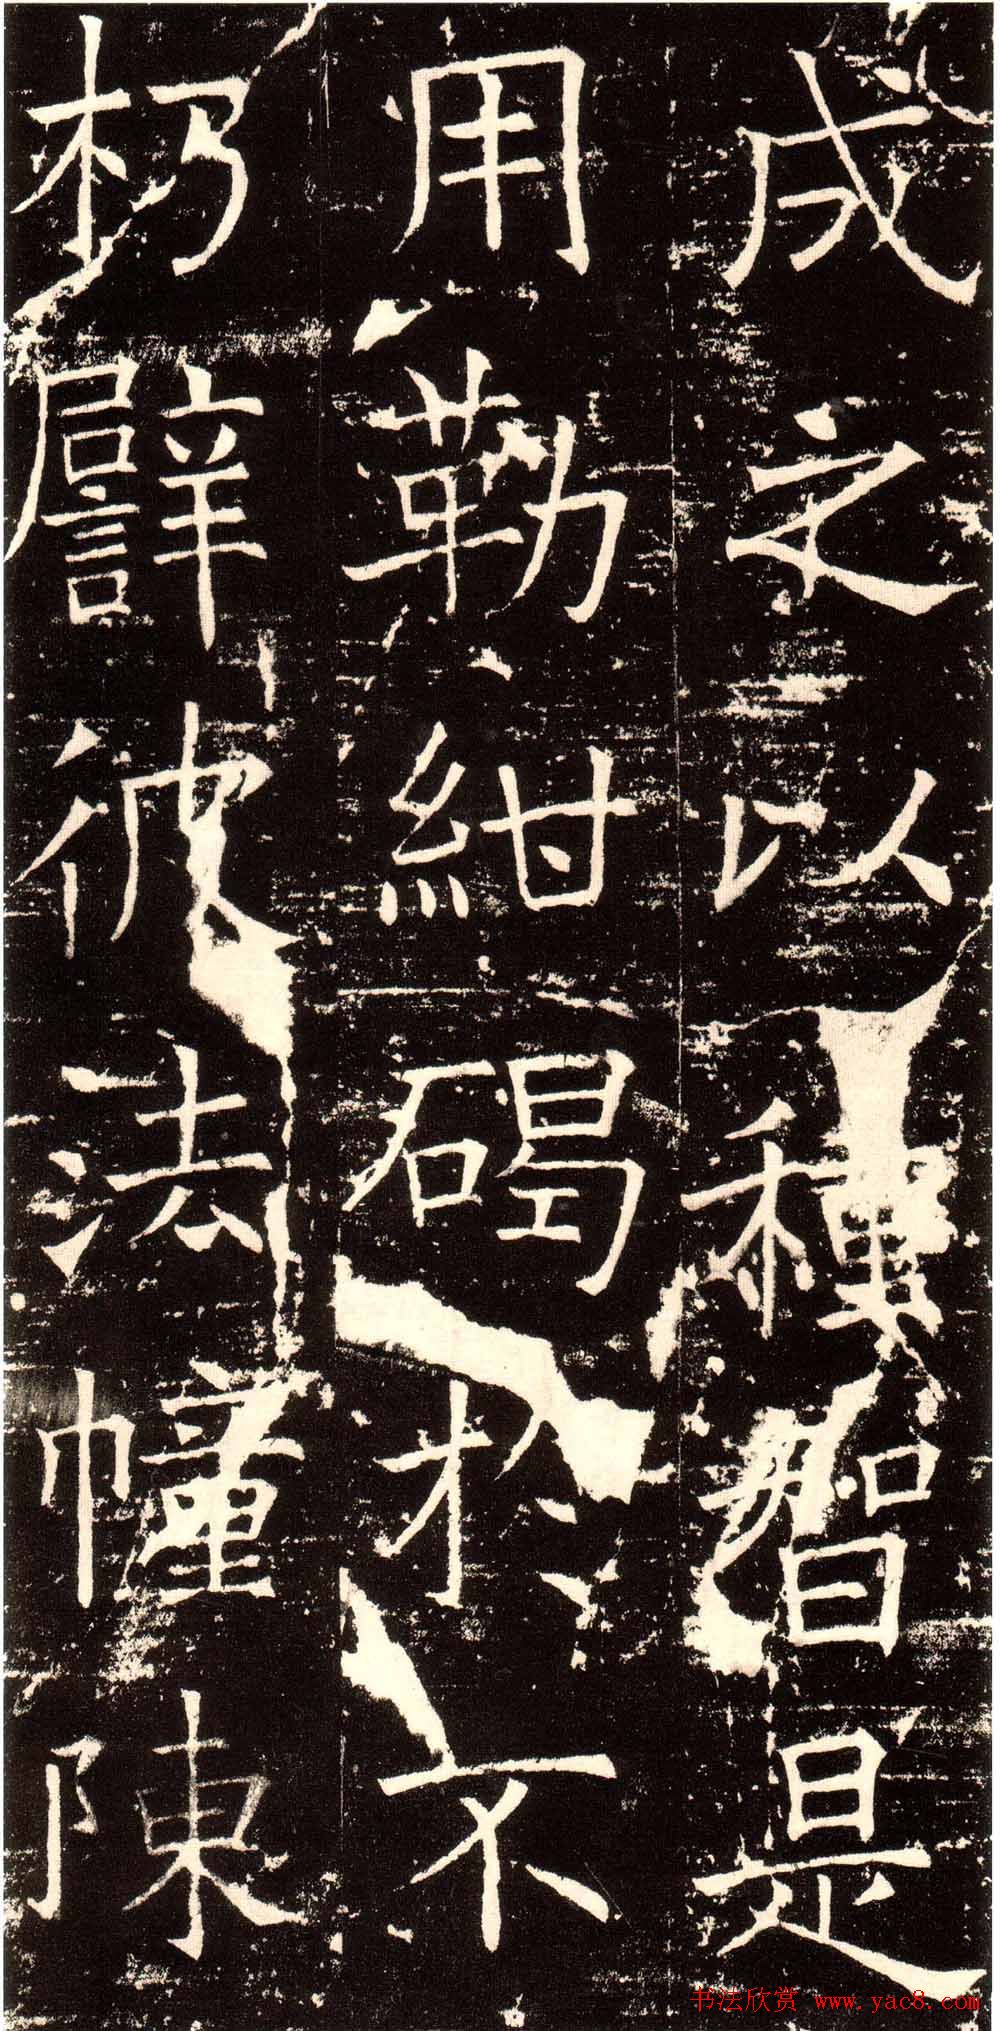 成之以種智是
用勒紺碣於不
朽譬彼法幢陳
书法欣赏 www.yac8.com